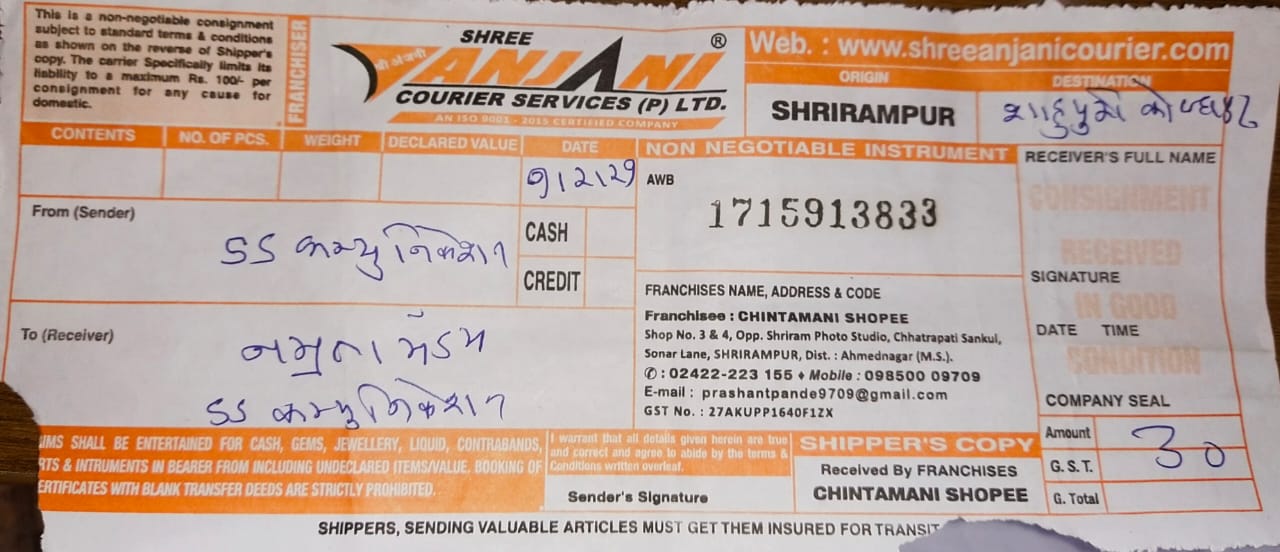 This is a non-negotiable consignment
subject to standard terms & conditions
as shown on the reverse of Shipper's
copy. The carrier Specifically limits its
liability to a maximum Rs. 100/- per
consignment for any cause for
domestic.
FRANCHISER
श्री अंजनी
SHREE
ANJANI ®
COURIER SERVICES (P) LTD.
AN ISO 9001 - 2015 CERTIFIED COMPANY
Web. : www.shreeanjanicourier.com
ORIGIN
DESTINATION
SHRIRAMPUR
शाहुपुरी कोल्हापूर
CONTENTS
NO. OF PCS.
WEIGHT
DECLARED VALUE
DATE
NON NEGOTIABLE INSTRUMENT
RECEIVER'S FULL NAME
AWB
1715913833
CONSIGNMENT
RECEIVED
IN GOOD
CONDITION
From (Sender)
SS कम्युनिकेशन
CASH
CREDIT
SIGNATURE
DATE TIME
COMPANY SEAL
FRANCHISES NAME, ADDRESS & CODE
Franchisee : CHINTAMANI SHOPEE
Shop No. 3 & 4, Opp. Shriram Photo Studio, Chhatrapati Sankul,
Sonar Lane, SHRIRAMPUR, Dist. : Ahmednagar (M.S.).
✆ : 02422-223 155 ♦ Mobile : 098500 09709
E-mail : prashantpande9709@gmail.com
GST No. : 27AKUPP1640F1ZX
To (Receiver)
नम्रता मॅडम
SS कम्युनिकेशन
IMS SHALL BE ENTERTAINED FOR CASH, GEMS, JEWELLERY, LIQUID, CONTRABANDS,
RTS & INTRUMENTS IN BEARER FROM INCLUDING UNDECLARED ITEMS/VALUE. BOOKING OF
ERTIFICATES WITH BLANK TRANSFER DEEDS ARE STRICTLY PROHIBITED.
I warrant that all details given herein are true
and correct and agree to abide by the terms &
Conditions written overleaf.
Sender's Signature
SHIPPER'S COPY
Received By FRANCHISES
CHINTAMANI SHOPEE
Amount 30
G. S. T.
G. Total
SHIPPERS, SENDING VALUABLE ARTICLES MUST GET THEM INSURED FOR TRANSIT